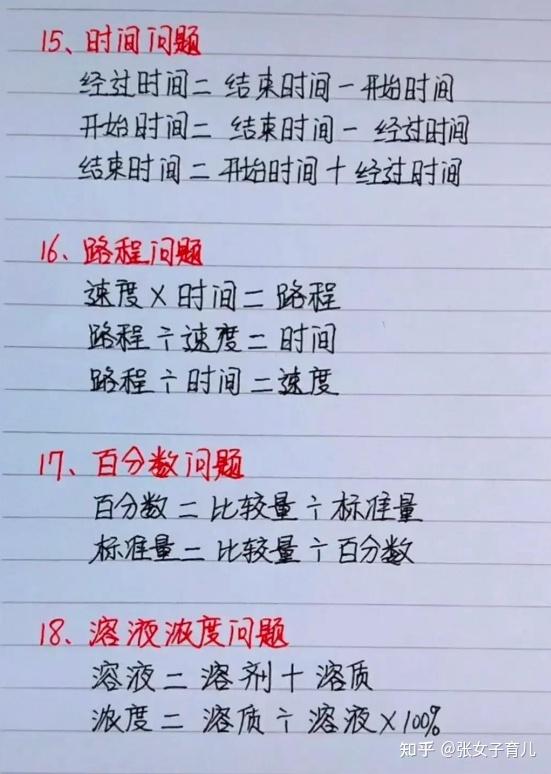 15、时间问题
经过时间=结束时间-开始时间
开始时间=结束时间-经过时间
结束时间=开始时间+经过时间
16、路程问题
速度×时间=路程
路程÷速度=时间
路程÷时间=速度
17、百分数问题
百分数=比较量÷标准量
标准量=比较量÷百分数
18、溶液浓度问题
溶液=溶剂+溶质
浓度=溶质÷溶液×100%
知乎 @张女子育儿